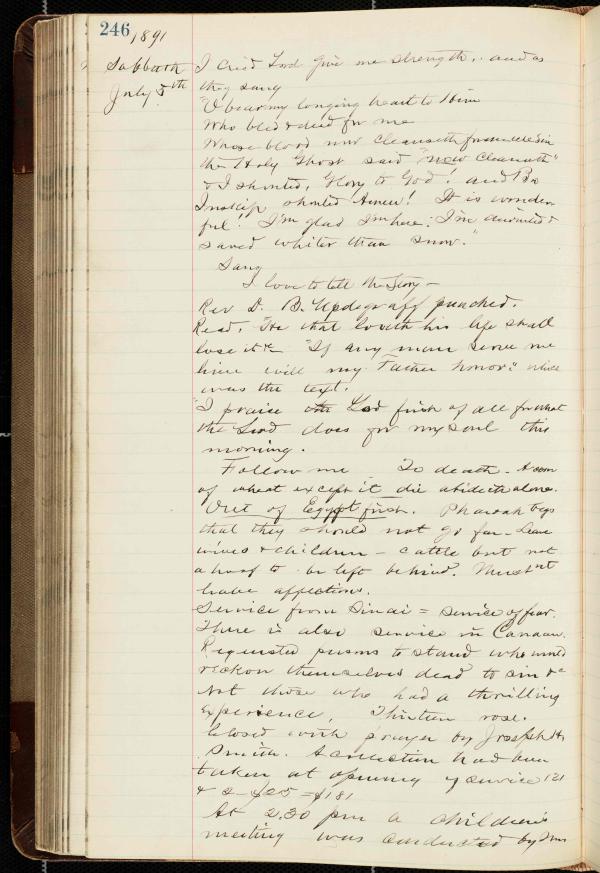 246 1891
Sabbath
July 5th
I cried Lord give me strength, and as
they sang
"O bear my longing heart to Him
Who bled & died for me
Whose blood now cleanseth from all Sin
the Holy Ghost said "now cleanseth"
& I shouted, Glory to God! and Bro
Inskip shouted Amen! It is wonder
ful! I'm glad I'm here; I'm &
saved whiter than snow."
Sang
I love to tell the Story —
Rev D. B. Updegraff preached.
Read, "He that loveth his life shall
lose it &c "If any man serve me
him will my Father honor" which
was the text.
"I praise the Lord first of all for what
the Lord does for my soul this
morning.
Follow me To death - A corn
of wheat except it die abideth alone.
Out of Egypt first. Pharoah begs
that they should not go far - Leave
wives & children - cattle but not
a hoof to be left behind. Must not
have affections.
Service from Sinai = service of fear.
There is also service in Canaan.
Requested persons to stand who would
reckon themselves dead to sin &c
Not those who had a thrilling
Experience, Thirteen rose.
Closed with prayer by Joseph H.
Smith. A collection had been
taken at opening of service 121
+ 2 = $181
At 2.30 pm a children's
meeting was conducted by Mrs